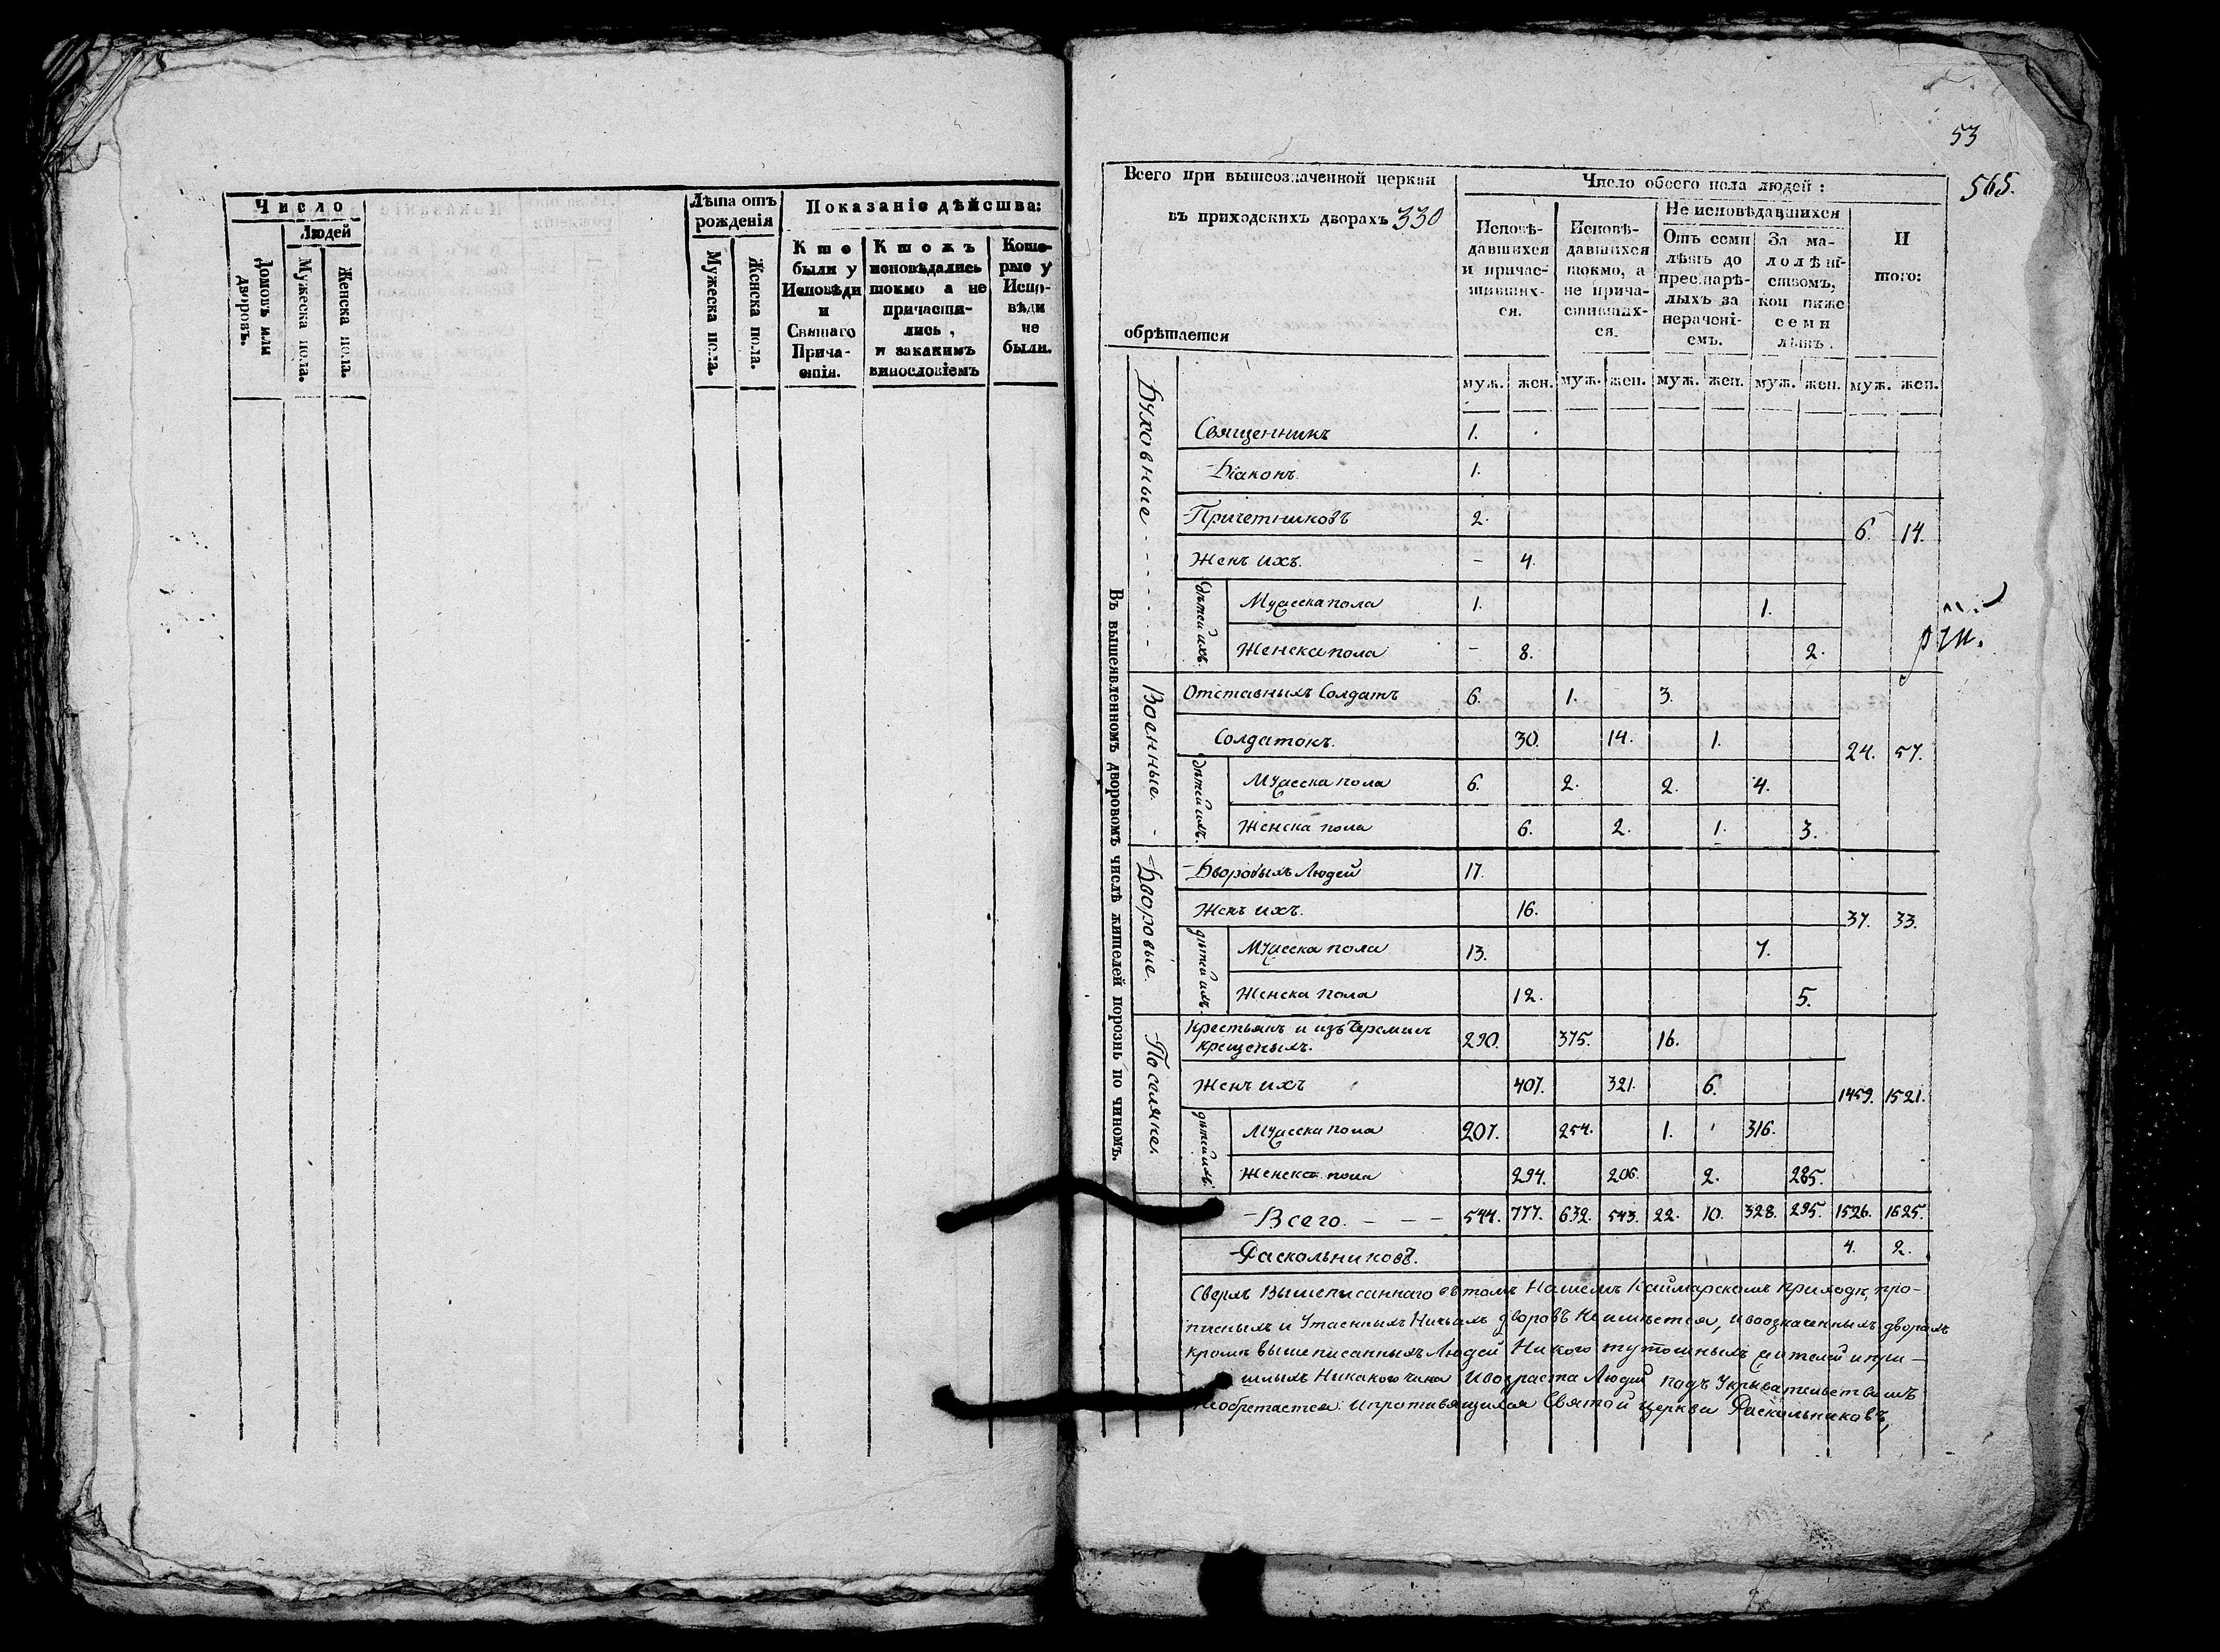 Число
Людей
Домовъ или дворовъ.
Мужеска пола.
Женска пола.
Лѣта отъ рожденія
Мужеска пола.
Женска пола.
Показаніе дѣйства:
Кто
были у
Исповѣди
и
Святаго
Прича-
стія.
Ктожъ
исповѣдались
токмо а не
причасти-
лись,
и закакимъ
винословіемъ
Кото-
рые у
Испо-
вѣди
не
были.
53
565.
Всего при вышеозначенной церкви
въ приходскихъ дворахъ 330
обрѣтается
Число обоего пола людей:
Исповѣ-
давшихся
и причас-
тивших-
ся.
Исповѣ-
давшихся
токмо, а
не прича-
стивших-
ся.
Не исповѣдавшихся
Отъ семи
лѣтъ до
престарѣ-
лыхъ за
нерачені-
емъ.
За ма-
лолѣт-
ствомъ,
кои ниже
семи
лѣтъ.
И
того:
муж. жен. муж. жен. муж. жен. муж. жен. муж. жен.
Въ вышеявленномъ дворовомъ числѣ жителей порознь по чиномъ.
Духовные
Священникъ 1.
Діаконъ 1.
Причетниковъ 2. 6. 14.
Женъ ихъ. - 4.
дѣтей ихъ.
Мужеска пола 1. 1.
Женска пола - 8. 2.
Военные.
Отставныхъ Солдатъ 6. 1. 3.
Солдатокъ. 30. 14. 1. 24. 57.
дѣтей ихъ.
Мужеска пола 6. 2. 2. 4.
Женска пола 6. 2. 1. 3.
Дворовые.
Дворовыхъ Людей 17.
Женъ ихъ. 16. 37. 33.
дѣтей ихъ.
Мужеска пола 13. 7.
Женска пола 12. 5.
Поселяне.
Крестьянъ и изъ Черемисъ
крещеныхъ. 290. 375. 16.
Женъ ихъ 407. 321. 6. 1459. 1521.
дѣтей ихъ
Мужеска пола 207. 254. 1. 316.
Женска пола 294. 206. 2. 285.
Всего. - - - 544. 777. 632. 543. 22. 10. 328. 295. 1526. 1625.
Раскольниковъ. 4. 2.
Сверхъ вышеписаннаго въ томъ Нашемъ Каймарскомъ приходѣ, про-
писныхъ и Утаенныхъ Ничьихъ дворовъ Неимѣется, ивоозначенныхъ дворахъ
кромѣ вышеписанныхъ Людей Никого тутошныхъ жителей ипри-
шлыхъ Никакого чина Ивозраста Людей подъ Укрывательствомъ
Необретается. Ипротивящихся Святой церкви Раскольниковъ,